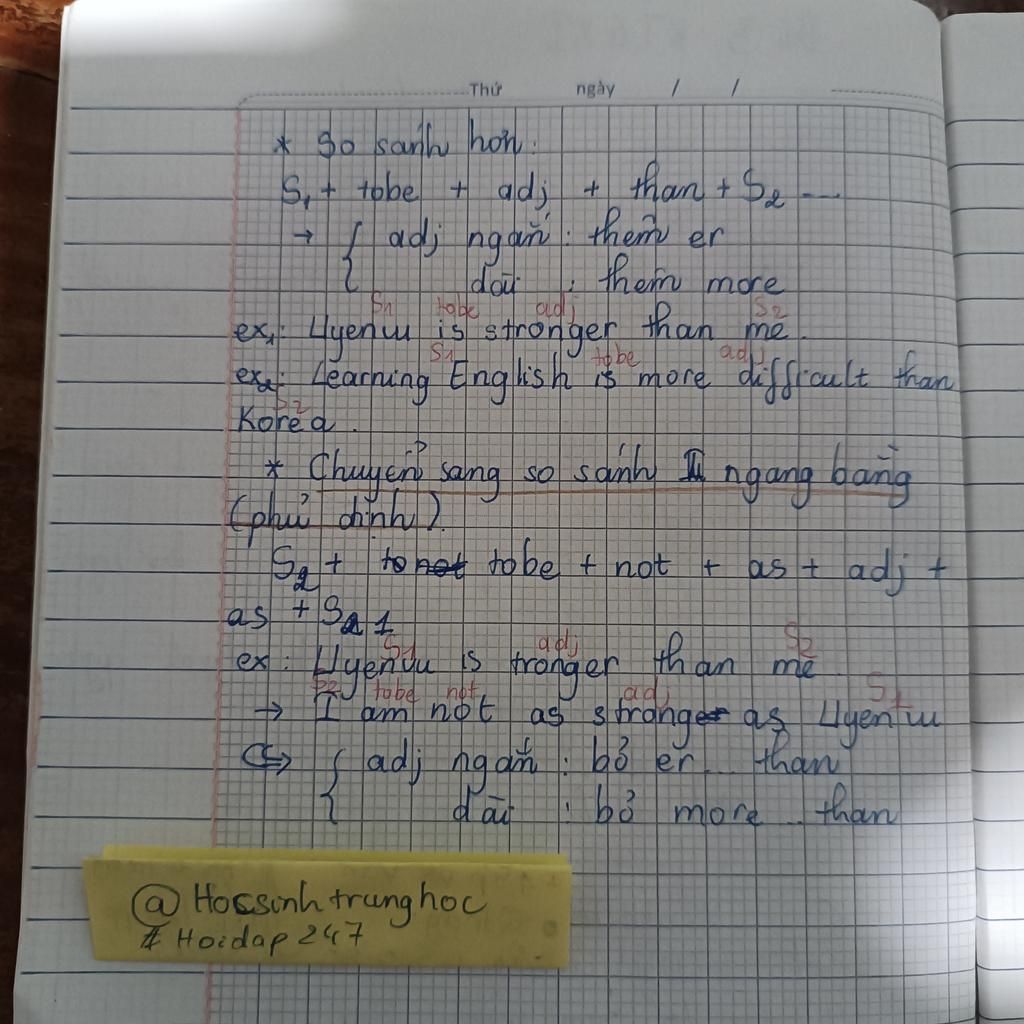 Thứ ngày / /
* So sánh hơn:
S1 + tobe + adj + than + S2 ...
→ { adj ngắn : thêm er
dài : thêm more
S1 tobe adj S2
ex1: Uyenvu is stronger than me.
S1 tobe adj
ex2: Learning English is more difficult than
S2
Korea.
* Chuyển sang so sánh ngang bằng
(phủ định).
S2 + tobe + not + as + adj +
as + S1
S1 adj S2
ex: Uyenvu is tronger than me
S2 tobe not adj S1
→ I am not as strong as Uyenvu
⇔ { adj ngắn : bỏ er... than
dài : bỏ more... than
@Hocsinhtrunghoc
# Hoidap247